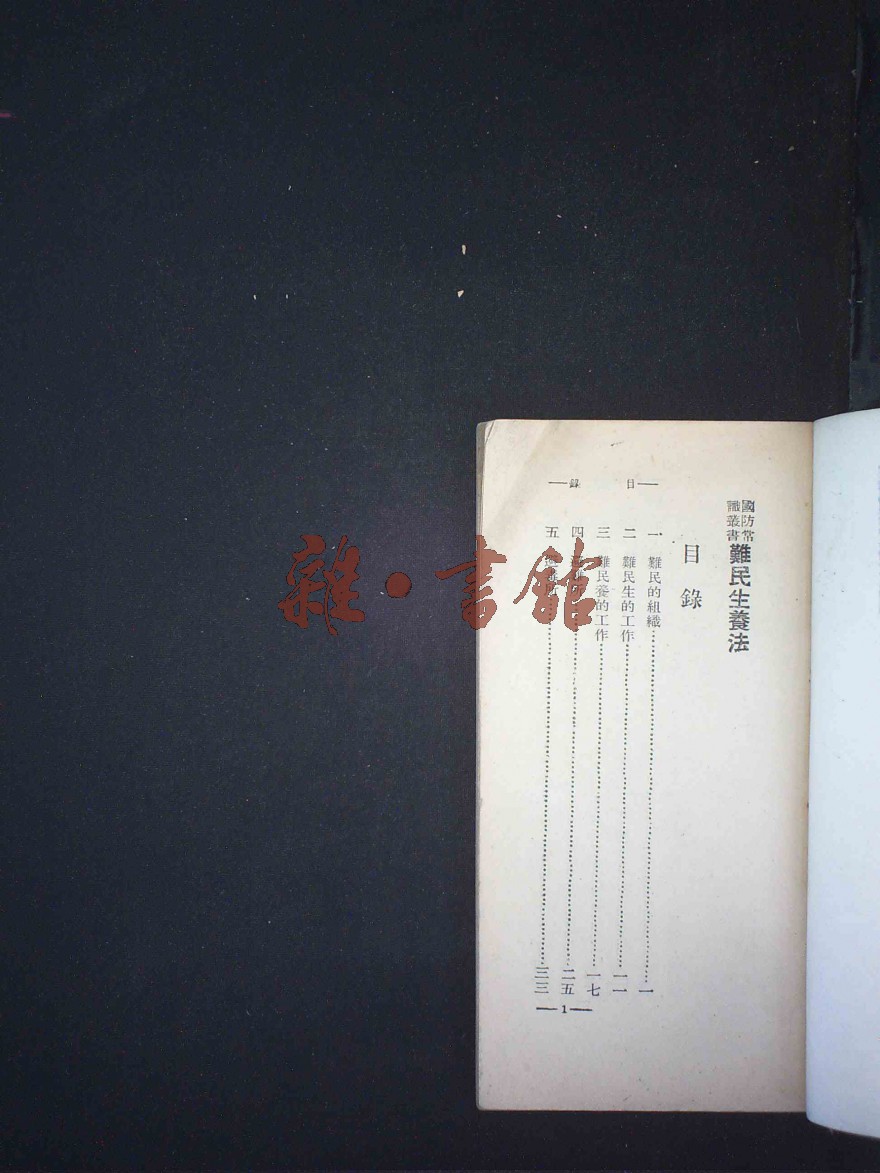 國防常識叢書
難民生養法
目錄
一 難民的組織……一
二 難民生的工作……一一
三 難民養的工作……一七
四……二五
五……三三
目錄
1
雜·書館